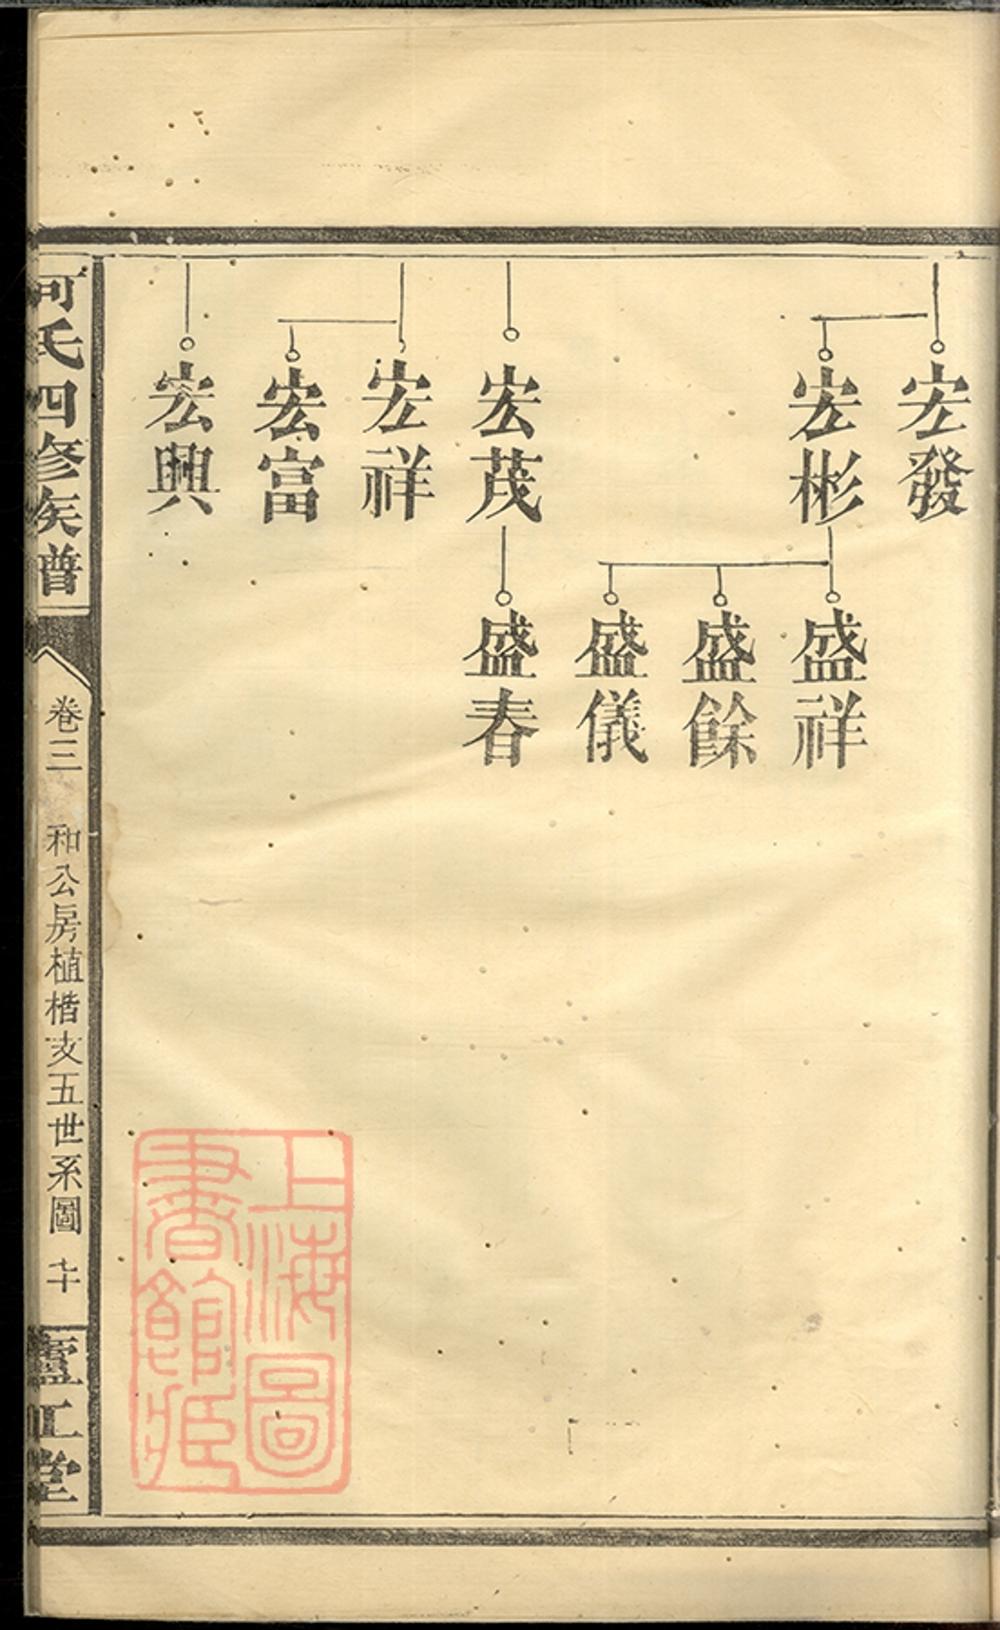 宏發
宏彬
宏茂
宏祥
宏富
宏興
盛祥
盛餘
盛儀
盛春
何氏四修族譜
卷三
和公房植楷支五世系圖
七十
廬江堂
上海圖
書館藏